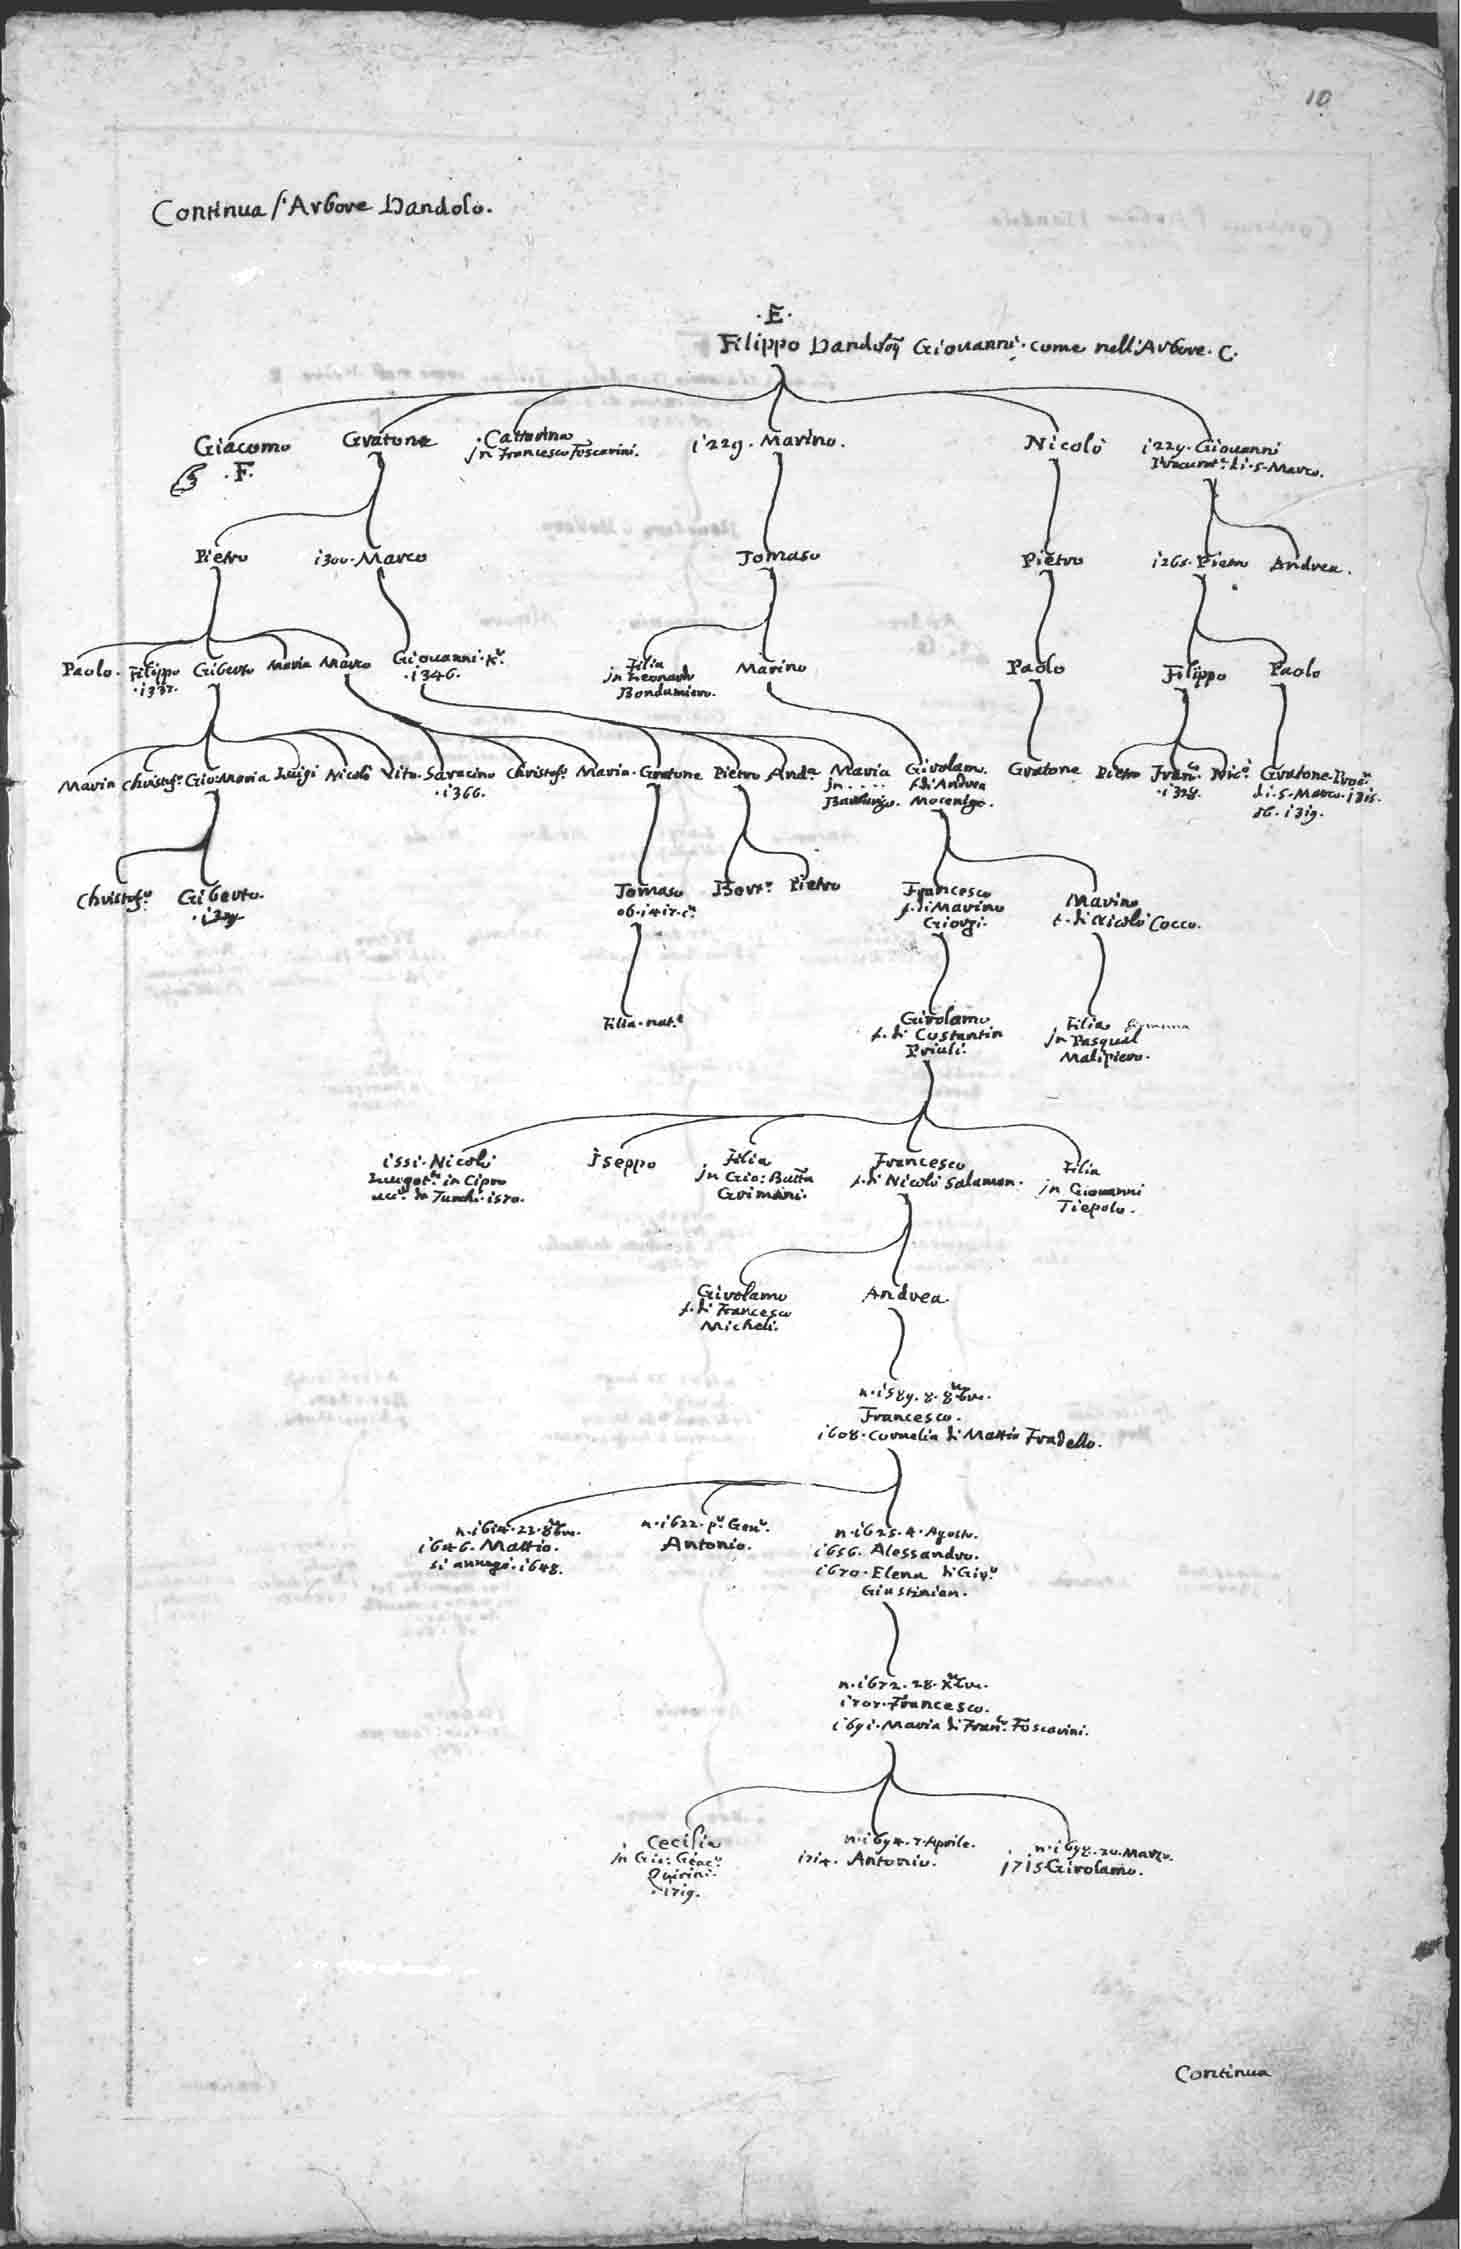 10
Continua l'Arbore Dandolo.
.E.
Filippo Dandolo q Giovanni. come nell'Arbore. C.
Giacomo
.F.
Gratone
Cattarina
in Francesco Foscarini.
1229. Marino.
Nicolò
1229. Giovanni
Procurat.r di. S. Marco.
Pietro
1300. Marco
Tomaso
Pietro
1265. Pietro
Andrea.
Paolo.
Filippo
Giberto
Maria
Marco
Giovanni. K.r
.1346.
Filia
in Leonardo
Bondumiero.
Marino
Paolo
Filippo
Paolo
Maria
Christof.o
Gio: Maria
Luigi
Nicolò
Vito.
Saracino
.1366.
Christof.o
Maria.
Gratone
Pietro
And.a
Maria
in . . . .
Barbarigo.
Girolamo.
f. di Andrea
Mocenigo.
Gratone
Pietro
Fran.co
.1328.
Nic.o
Gratone. Proc.r
di. S. Marco.
Christof.o
Giberto.
Tomaso
Bort.o
Pietro
Francesco
f. di Marino
Giorgi.
Marino
f. di Nicolò Cocco.
Filia. nat.e
Girolamo
f. di Costantin
Priuli.
Filia
in Pasqual
Malipiero.
1551. Nicolò
Luogot.te in Cipro
ucc.o da Turchi. 1570.
Iseppo
Filia
in Gio: Batta
Grimani.
Francesco
f. di Nicolò Salamon.
Filia
in Giovanni
Tiepolo.
Girolamo
f. di Francesco
Micheli.
Andrea.
n. 1589. 8. 8bre.
Francesco.
1608. Cornelia di Mattio Fradello.
n. 1614. 22. 8bre.
1646. Mattio.
si annegò. 1648.
n. 1622. p.o Gen.o
Antonio.
n. 1625. 4. Agosto.
1656. Alessandro.
1670. Elena di Gir.o
Giustinian.
n. 1672. 28. Xbre.
1707. Francesco.
1691. Maria di Fran.co Foscarini.
Cecilia
in Gio: Giac.o
Quirini.
.1719.
n. 1694. 7. Aprile.
1714. Antonio.
n. 1698. 20. Marzo.
1715 Girolamo.
Continua